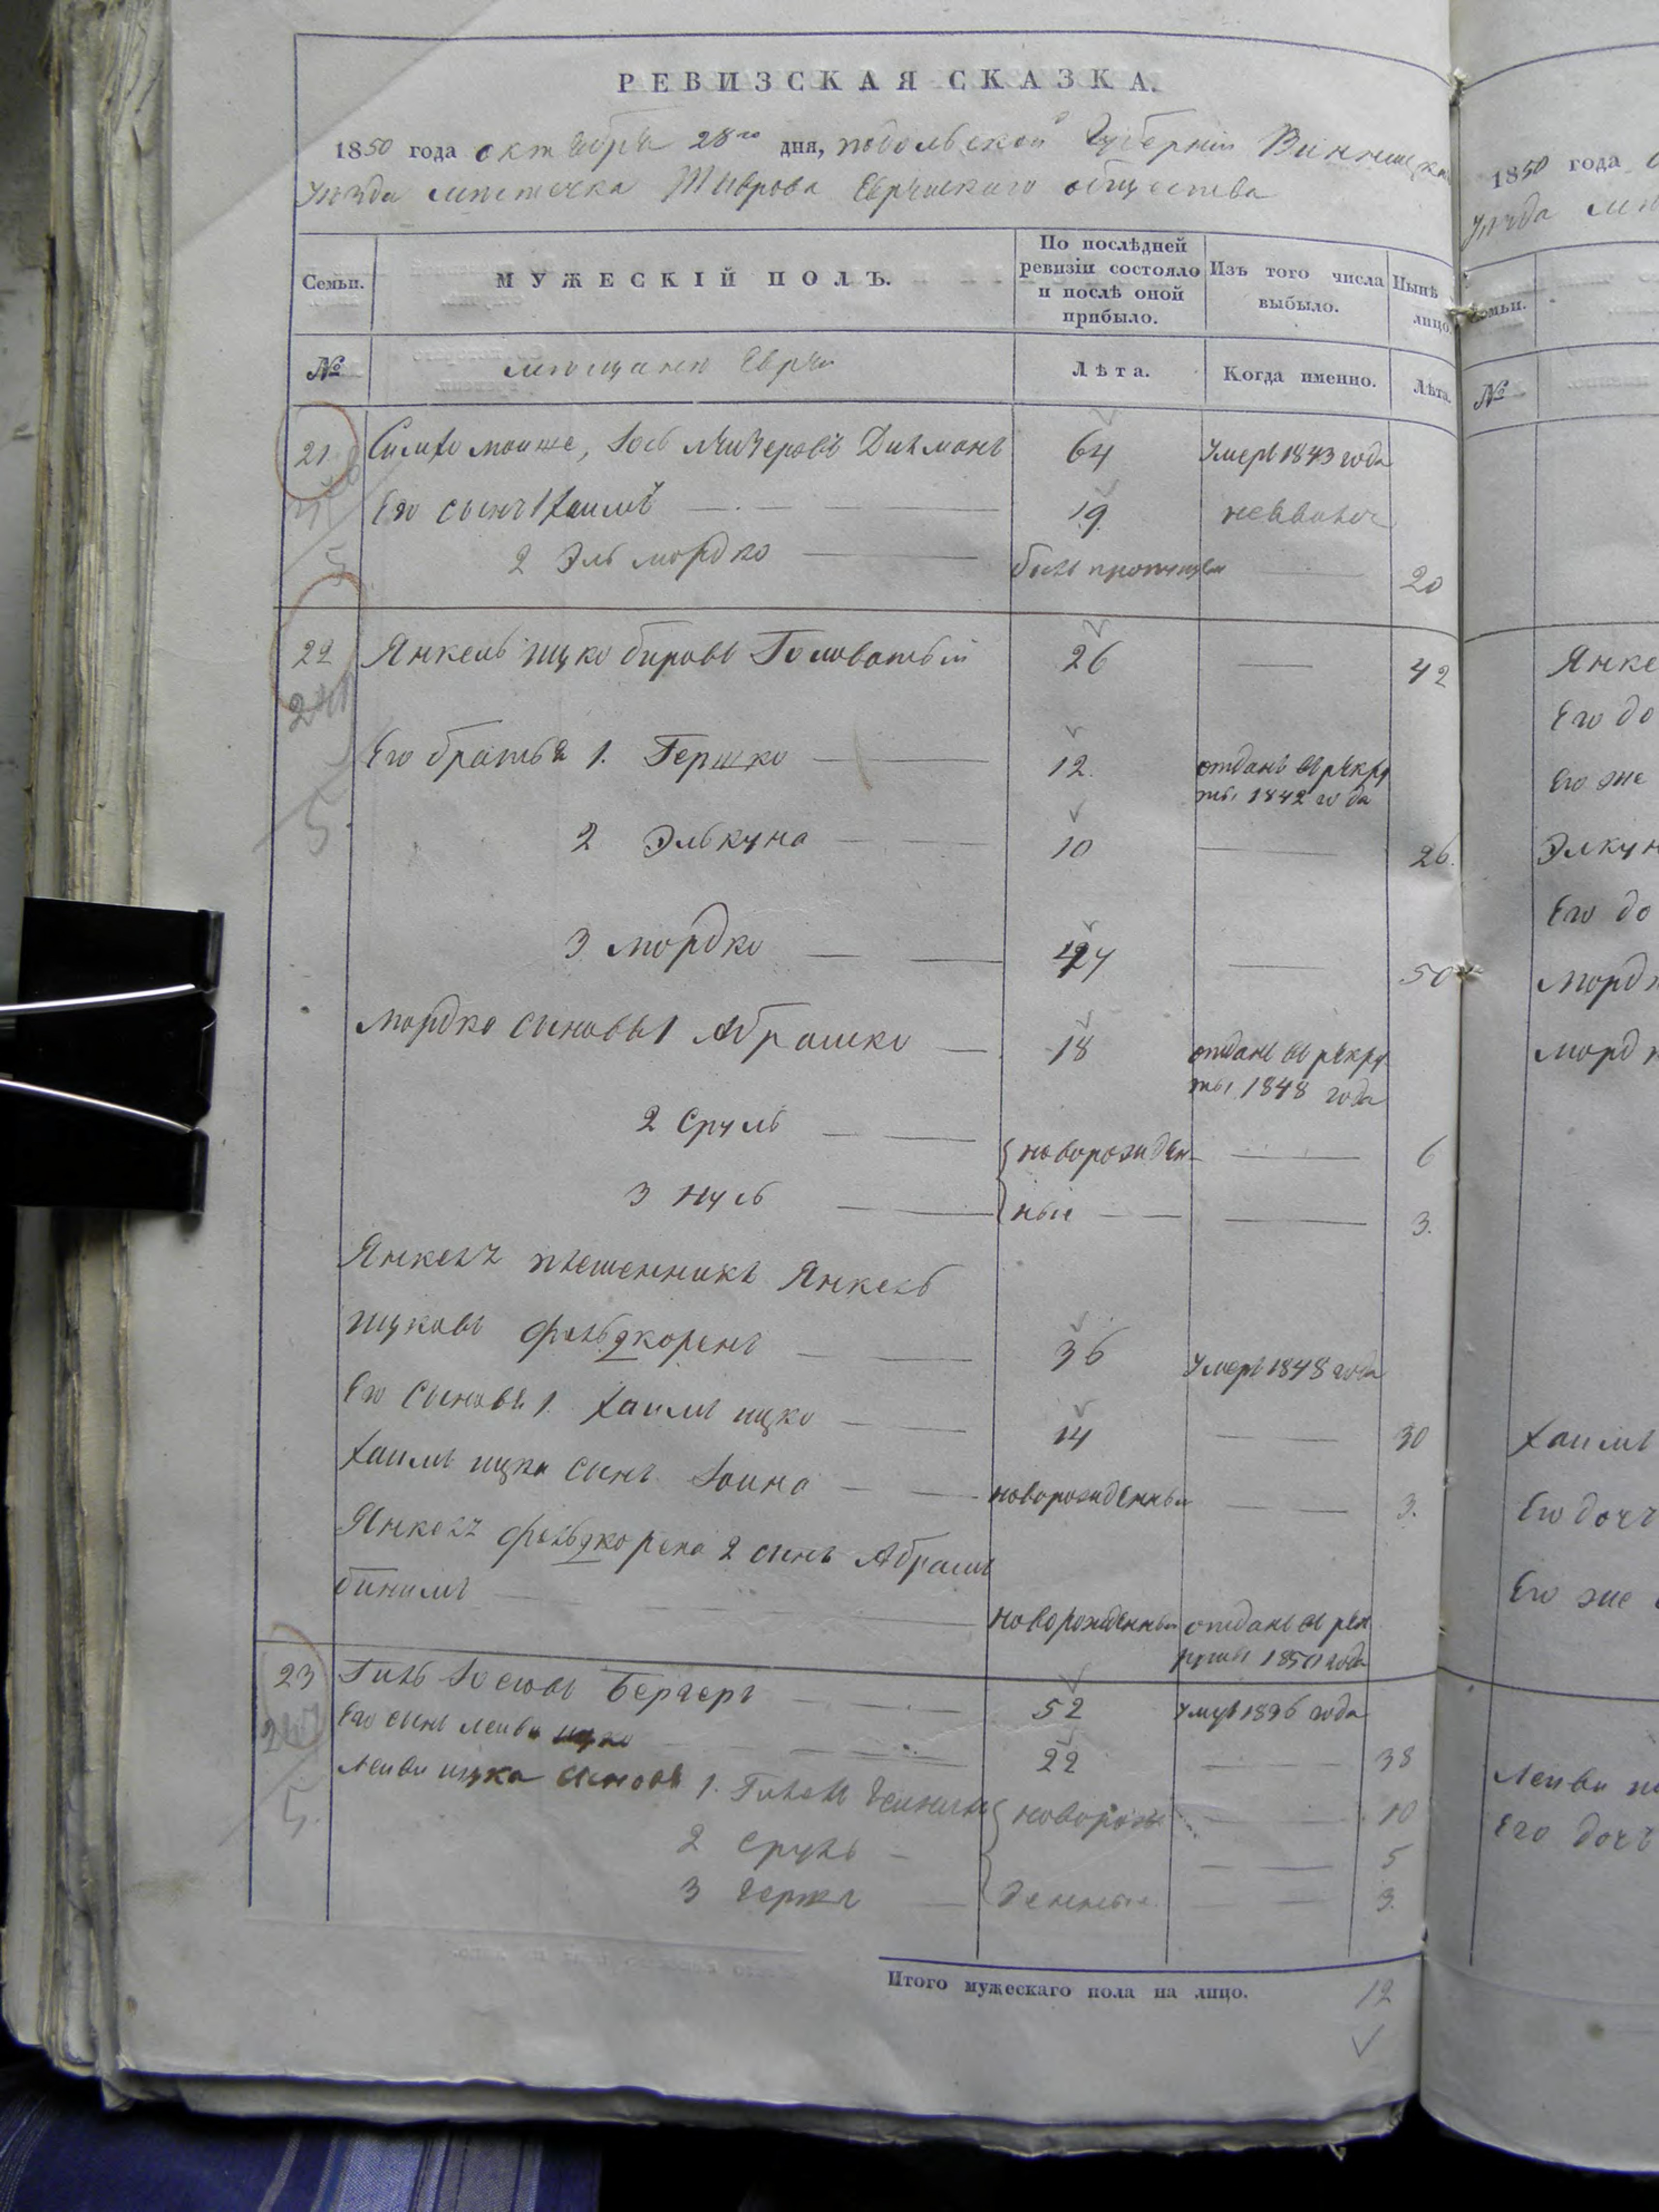 РЕВИЗСКАЯ СКАЗКА.
1850 года октября 28го дня, подольской Губерніи Винницка
уѣзда мѣстечка Тиврова Еврейскаго общества
Семьи.
МУЖЕСКІЙ ПОЛЪ.
По послѣдней ревизіи состояло и послѣ оной прибыло.
Изъ того числа выбыло.
Нынѣ лицо.
№
мѣщане Евреи
Лѣта.
Когда именно.
Лѣта.
21 мошке, Дихманъ 64 Умеръ 1843 года
Его сынъ 1 Хаимъ 19
2 Эль мордко былъ пропущен 20
22 Янкель ицко Головатый 26 42
Его братья 1. Гершко 12. отданъ въ рекру
ты 1842 года
2 Элькуна 10 26.
3 мордко 50
мордко сыновья 1 Абрашко 18 отданъ въ рекру
ты 1848 года
2 Сруль новорожден 6
3 Нусь ные 3.
Янкель племенникъ Янкель
ицковъ 36 Умеръ 1848 года
Его сыновья 1. Хаимъ ицко 14 30
Хаимъ ицка сынъ новорожденный 3.
Янкель 2 сынъ Абрамъ
бинимъ новорожденный отданъ въ рек
руты 1850 года
23 Гиль Бергеръ 52 года
Его сынъ лейви ицко 22 38
Лейви ицка сыновья 1. новорож 10
2 Сруль 5
3 денные 3.
Итого мужескаго пола на лицо. 12
1850 года
уѣзда
№
Янке
Его до
Его же
Элкун
Его до
Морд
Морд
Хаимъ
Его дочь
Его же
Лейви
Его дочь